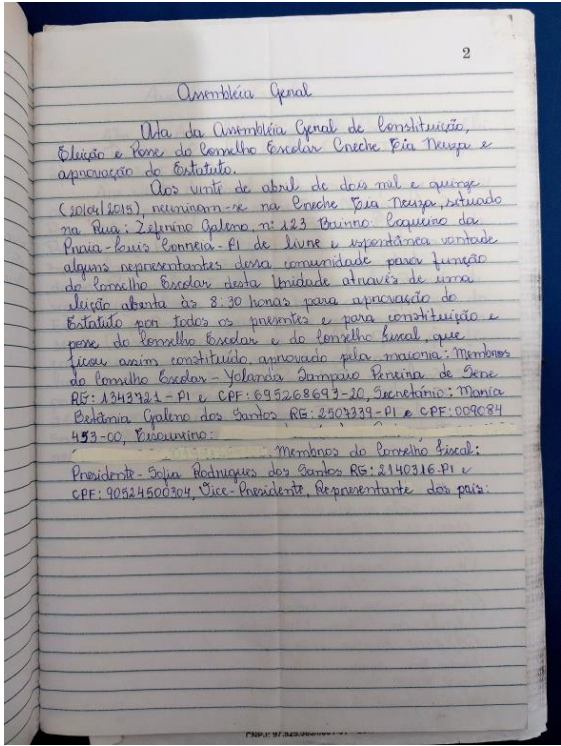 2
Assembléia Geral
Ata da Assembléia Geral de Constituição,
Eleição e Posse do Conselho Escolar Creche Tia Neuza e
aprovação do Estatuto.
Aos vinte de abril de dois mil e quinze
(20/04/2015) reuniram-se na Creche Tia Neuza, situado
na Rua: Zeferino Galeno, n: 123 Bairro: Coqueiro da
Praia-Luis Correia-PI de livre e espontânea vontade
alguns representantes dessa comunidade para função
do Conselho Escolar desta Unidade através de uma
eleição aberta às 8:30 horas para aprovação do
Estatuto por todos os presentes e para constituição e
posse do Conselho Escolar e do Conselho Fiscal, que
ficou assim constituído, aprovado pela maioria: Membros
do Conselho Escolar - Yolanda Sampaio Pereira de Sene
RG: 1343721 - PI e CPF: 695268693-20, Secretário: Maria
Betânia Galeno dos Santos RG: 2507339-PI e CPF: 009084
453-00, Tesoureiro:
Membros do Conselho Fiscal:
Presidente - Sofia Rodrigues dos Santos RG: 2140316-PI e
CPF: 90524500304, Vice-Presidente, Representante dos pais: